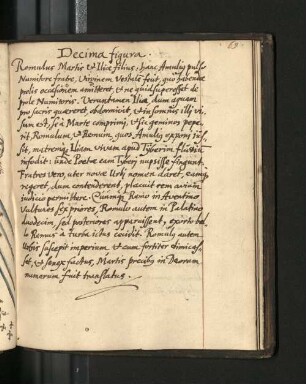 Decima figura.
Romulus Martis et Iliæ filius; hanc Amulius pulso
Numitore fratre, Virginem Vestalẽ fecit, quo habendæ
prolis occasionem amitteret, et ne quid superesset de
prole Numitoris. Veruntamen Ilia, dum aquam
pro sacris quæreret, obdormivit, et in somnijs illi vi-
sum est, se à Marte comprimi, et sic geminos pepe-
rit Romulum et Remum, quos Amulius exponi ius-
sit, matremq; Iliam vivam apud Tyberim fluviũ
infodit: unde Poetæ eam Tyberi nupsisse fingunt.
Fratres vero, uter novæ Urbi nomen daret, eamq;
regeret, dum contenderent, placuit rem avium
iudicio permittere. Cumq; Remo in Aventino
Vultures sex priores, Romulo autem in Palatino
duodecim, sed posteriores apparuissent, exorto bel-
lo Remus à turba ictus cecidit. Romulus autem
Urbis suscepit imperium et cum fortiter dimicas-
set, et senex factus, Martis precibus in Deorum
numerum fuit translatus.